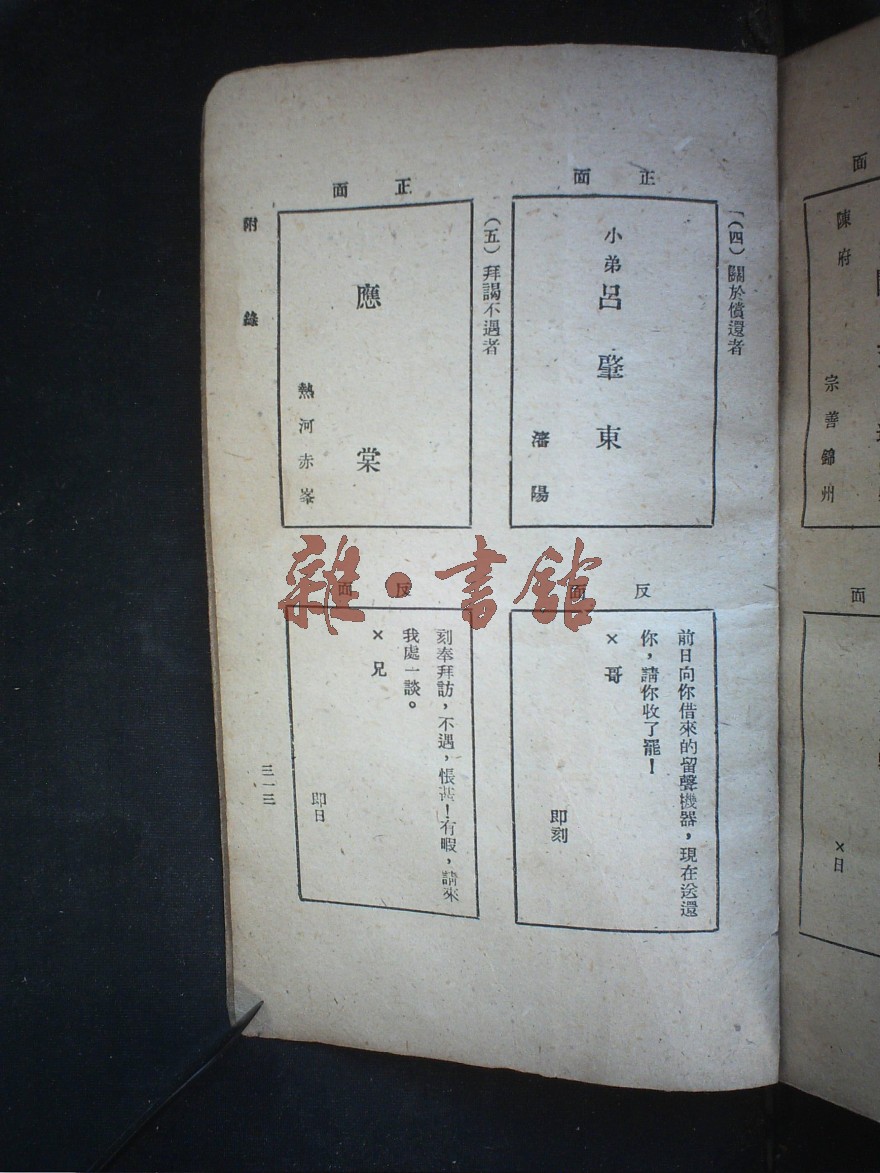 (四)關於償還者
正面
小弟呂肇東
瀋陽
反面
前日向你借來的留聲機器，現在送還
你，請你收了罷！
×哥
即刻
(五)拜謁不遇者
正面
應棠
熱河赤峯
反面
刻奉拜訪，不遇，悵甚！有暇，請來
我處一談。
×兄
即日
附錄
三一三
面
陳府
宗善錦州
面
×日
雜·書館